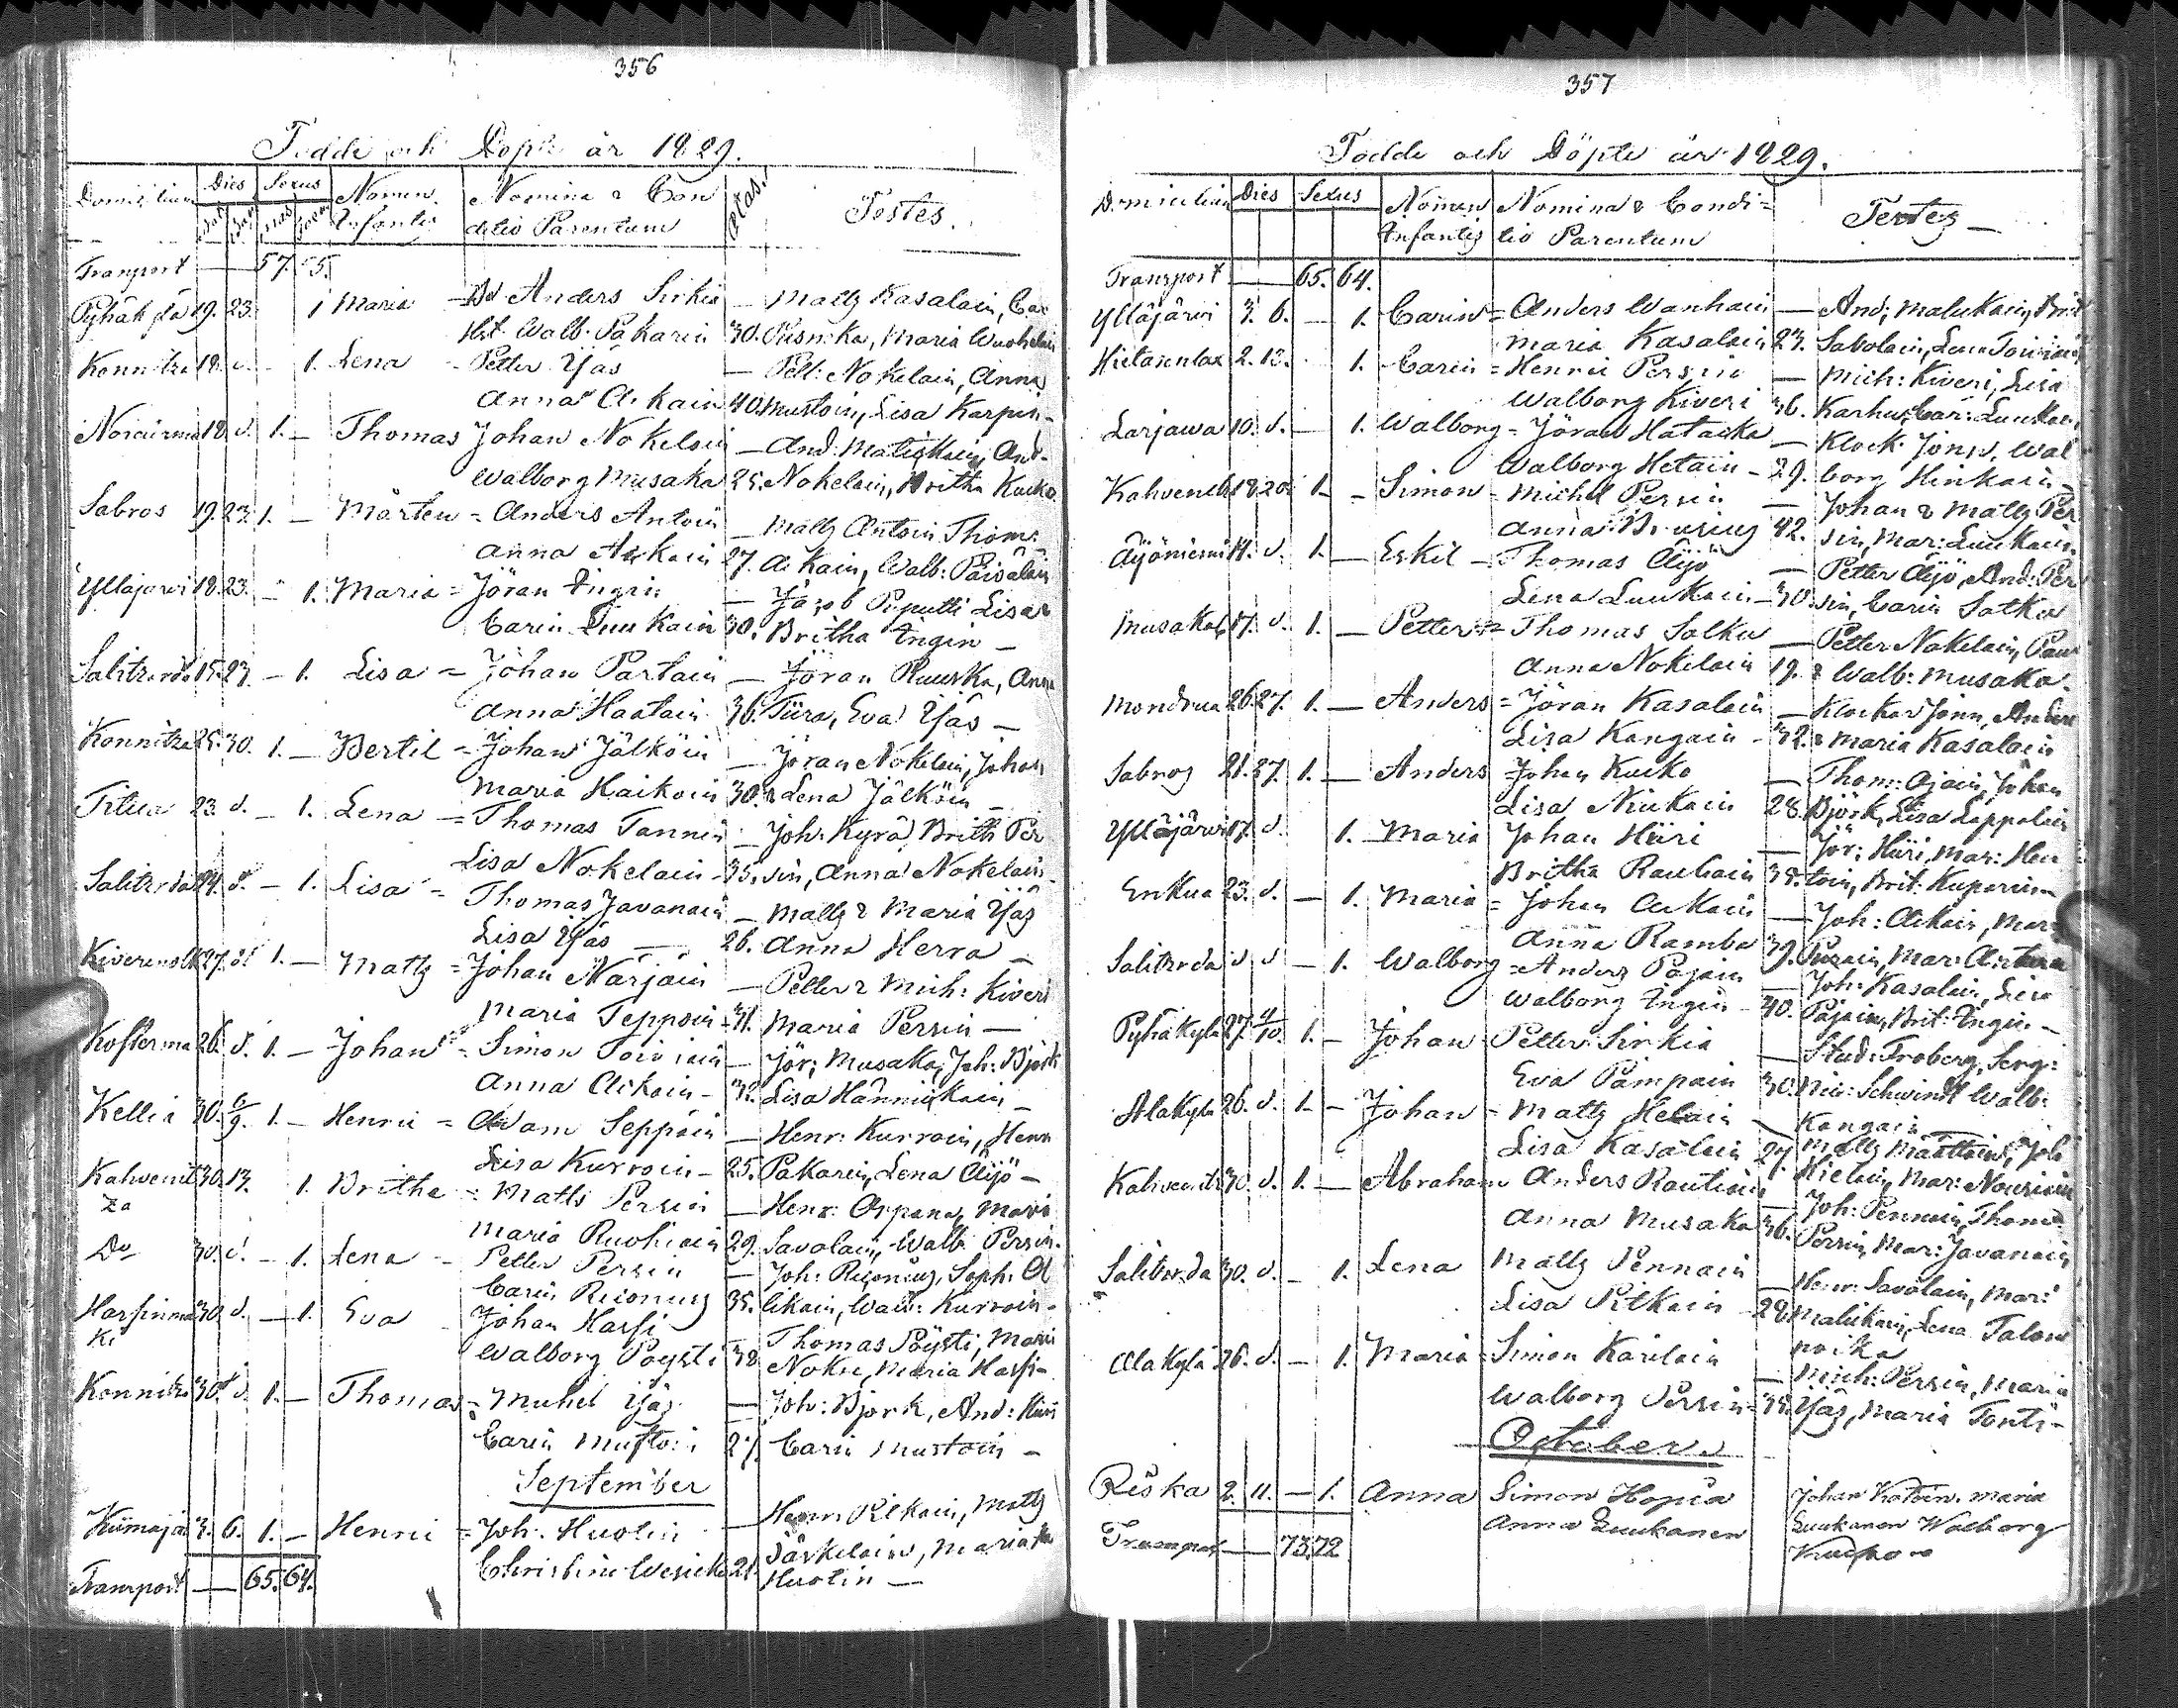 356
Födde och Döpte år 1829.
Domicilium Dies Sexus Nomen Nomina & Con Ætas. Testes.
Infantis ditio Parentum
Transport — 57. 55.
Pyhäkylä 19. 23. 1 Maria — Anders Sirkiä — Matts Kasalain, Car
Hst. Walb: Pakarin 30. Pusnika, Maria Wuohelain
Konnitza 18. d. - 1. Lena - Petter Yjäs — Pett: Nokelain, Anna
Anna Ackain 40. Mustoin, Lisa Karpin-
18. d. 1. — Thomas Johan Nokelain — And: Matiskain, And-
Walborg Musaka 25. Nokelain, Britha Kucko
Sabros 19. 23. 1. — Mårten = Anders Antoin — Matts Antoin Thom:
Anna Ackain 27. Ackain, Walb: Päivöläin
Ylläjärwi 18. 23. - 1. Maria = Jöran Ingin — Jacob Puputti Lisa &
Carin Luukain 30. Britha Ingin —
Salitzrda 15. 23. — 1. Lisa = Johan Partain — Jöran Ruuska, Anna
Anna Haatain 36. Tiira, Eva Yjäs —
Konnitza 25. 30. 1. — Bertil = Johan Jälköin — Jöran Nokelain, Johan
Maria Haikoin 30. & Lena Jälköin —
Titua 23. d. — 1. Lena = Thomas Tannin — Joh: Kyrä, Brith Per
Lisa Nokelain - 35. sin, Anna Nokelain-
Salitzrda 24. d. — 1. Lisa = Thomas Javanain — Matts & Maria Yjäs
Lisa Yjäs — 26. Anna Herra —
27. d. 1. — Matts = Johan Narjain — Petter & Mich: Kiveri
Maria Seppoin - 31. Maria Persin —
Kosterma 26. d. 1. — Johan = Simon Toiviain — Jör: Musaka, Joh: Björk
Anna Ackain - 32. Lisa Hännikain —
Kellia 30. 6/9. 1. — Henric = Adam Seppäin — Henr: Kurroin, Henr
Lisa Kurroin - 25. Pakarin, Lena Äijö —
Kahvenit 30. 13. 1. Britha = Matts Persin — Henr: Orpana, Mari
za Maria Ruohiain 29. Savolain, Walb: Persin-
Do 30. d. — 1. Lena - Petter Persin — Joh: Reponius, Soph: A
Carin Reponius 35. ckain, Walb: Kurroin-
Harsinmä 30. d. — 1. Eva - Johan Harsi — Thomas Pöysti, Mari
ki Walborg Pöysti 38 Noku, Maria Harsi-
Konnitza 30. d. 1. — Thomas = Michel Yjäs — Joh: Björk, And: Hiiri
Carin Mustoin 27. Carin Mustoin —
September
3. 6. 1. — Henric = Joh. Huotin — Henr: Pitkain, Matts
Christina Wesicko 21. Särkelain, Maria
Transport — 65. 64. Huotin —
357
Födde och Döpte år 1829.
Domicilium Dies Sexus Nomen Nomina & Condi= Testes —
Infantis tio Parentum
Transport — 65. 64.
Ylläjärvi 3. 6. — 1. Carin = Anders Wanhain — And: Malukain, Brit
Maria Kasalain 23. Sabolain, Lena Toiviain
Hietasenlax 2. 13. 1. Carin = Henric Persin — Mich: Kiveri, Lisa
Walborg Kiveri 36. Karhu, Car: Luukain
Larjawa 10. d. — 1. Walborg = Jöran Hatacka — Klock: Jonn, Wal
Walborg Hetain - 29. borg Hinkain -
18. 20. 1. — Simon = Michel Persin — Johan & Matts Per
Anna 42. sin, Mar: Luukain.
Äijöniemi 14. d. 1. — Eskil — Thomas Äijö — Petter Äijö, And: Per
Lena Luukain - 30. sin, Carin Salku
Musaka 17. d. 1. — Petter = Thomas Salku — Petter Nokelain, Paul
Anna Nokelain 19. & Walb: Musaka.
Mondrua 26. 27. 1. — Anders = Jöran Kasalain — Klockar Jonn, Anders
Lisa Kangain - 32. & Maria Kasalain
Sabros 21. 27. 1. — Anders = Johan Kucko — Thom: Ojain, Johan
Lisa Niukain 28. Björk, Lisa Lappalain
Ylläjärvi 17. d. 1. — Maria Johan Hiiri — Jör: Hiiri, Mar: Hu
Britha Rauhain 38. toin, Brit: Kuparin-
Enkua 23. d. — 1. Maria = Johan Ackain — Joh: Ackain, Mar
Anna Ramba 39. Mar:
Salitzrda d d — 1. Walborg = Anders Pajain — Joh: Kasalain, Lisa
Walborg Ingin - 40. Pajain, Brit: Ingin —
Pyhäkylä 27. 4/10. 1. — Johan Petter Sirkiä — Stud: Froberg, Serg:
Eva Pampain 30. Schwindt Walb:
Kangain
Alakylä 26. d. 1. — Johan = Matts Helain — Matts Määttäin, Joh
Lisa Kasalain 27 Hielain, Mar: Nousiain
30. d. 1. — Abraham Anders Rautiain — Joh: Pennain, Thom:
Anna Musaka 36. Persin, Mar: Javanain
Salitzrda 30. d. — 1. Lena Matts Pennain — Henr: Savolain, Mari
Lisa Pitkain - 28. Malukain, Lena Talon
poika
Alakylä 26. d. — 1. Maria = Simon Karilain — Mich: Persin, Maria
Walborg Persin - 38. Yjäs, Maria Tonti-
October.
Riska 2. 11. — 1. Anna Simon Hopia Johan Maria
Anna Luukanen Luukanen Walborg
Transport — 73. 72